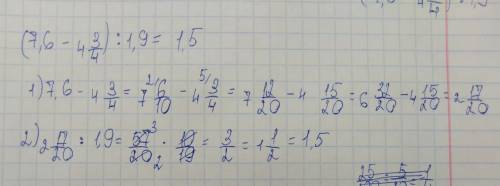 (7,6 - 4 3/4) : 1,9 = 1,5
1) 7,6 - 4 3/4 = 7 6/10 - 4 3/4 = 7 12/20 - 4 15/20 = 6 32/20 - 4 15/20 = 2 17/20
2) 2 17/20 : 1,9 = 57/20 · 10/19 = 3/2 = 1 1/2 = 1,5